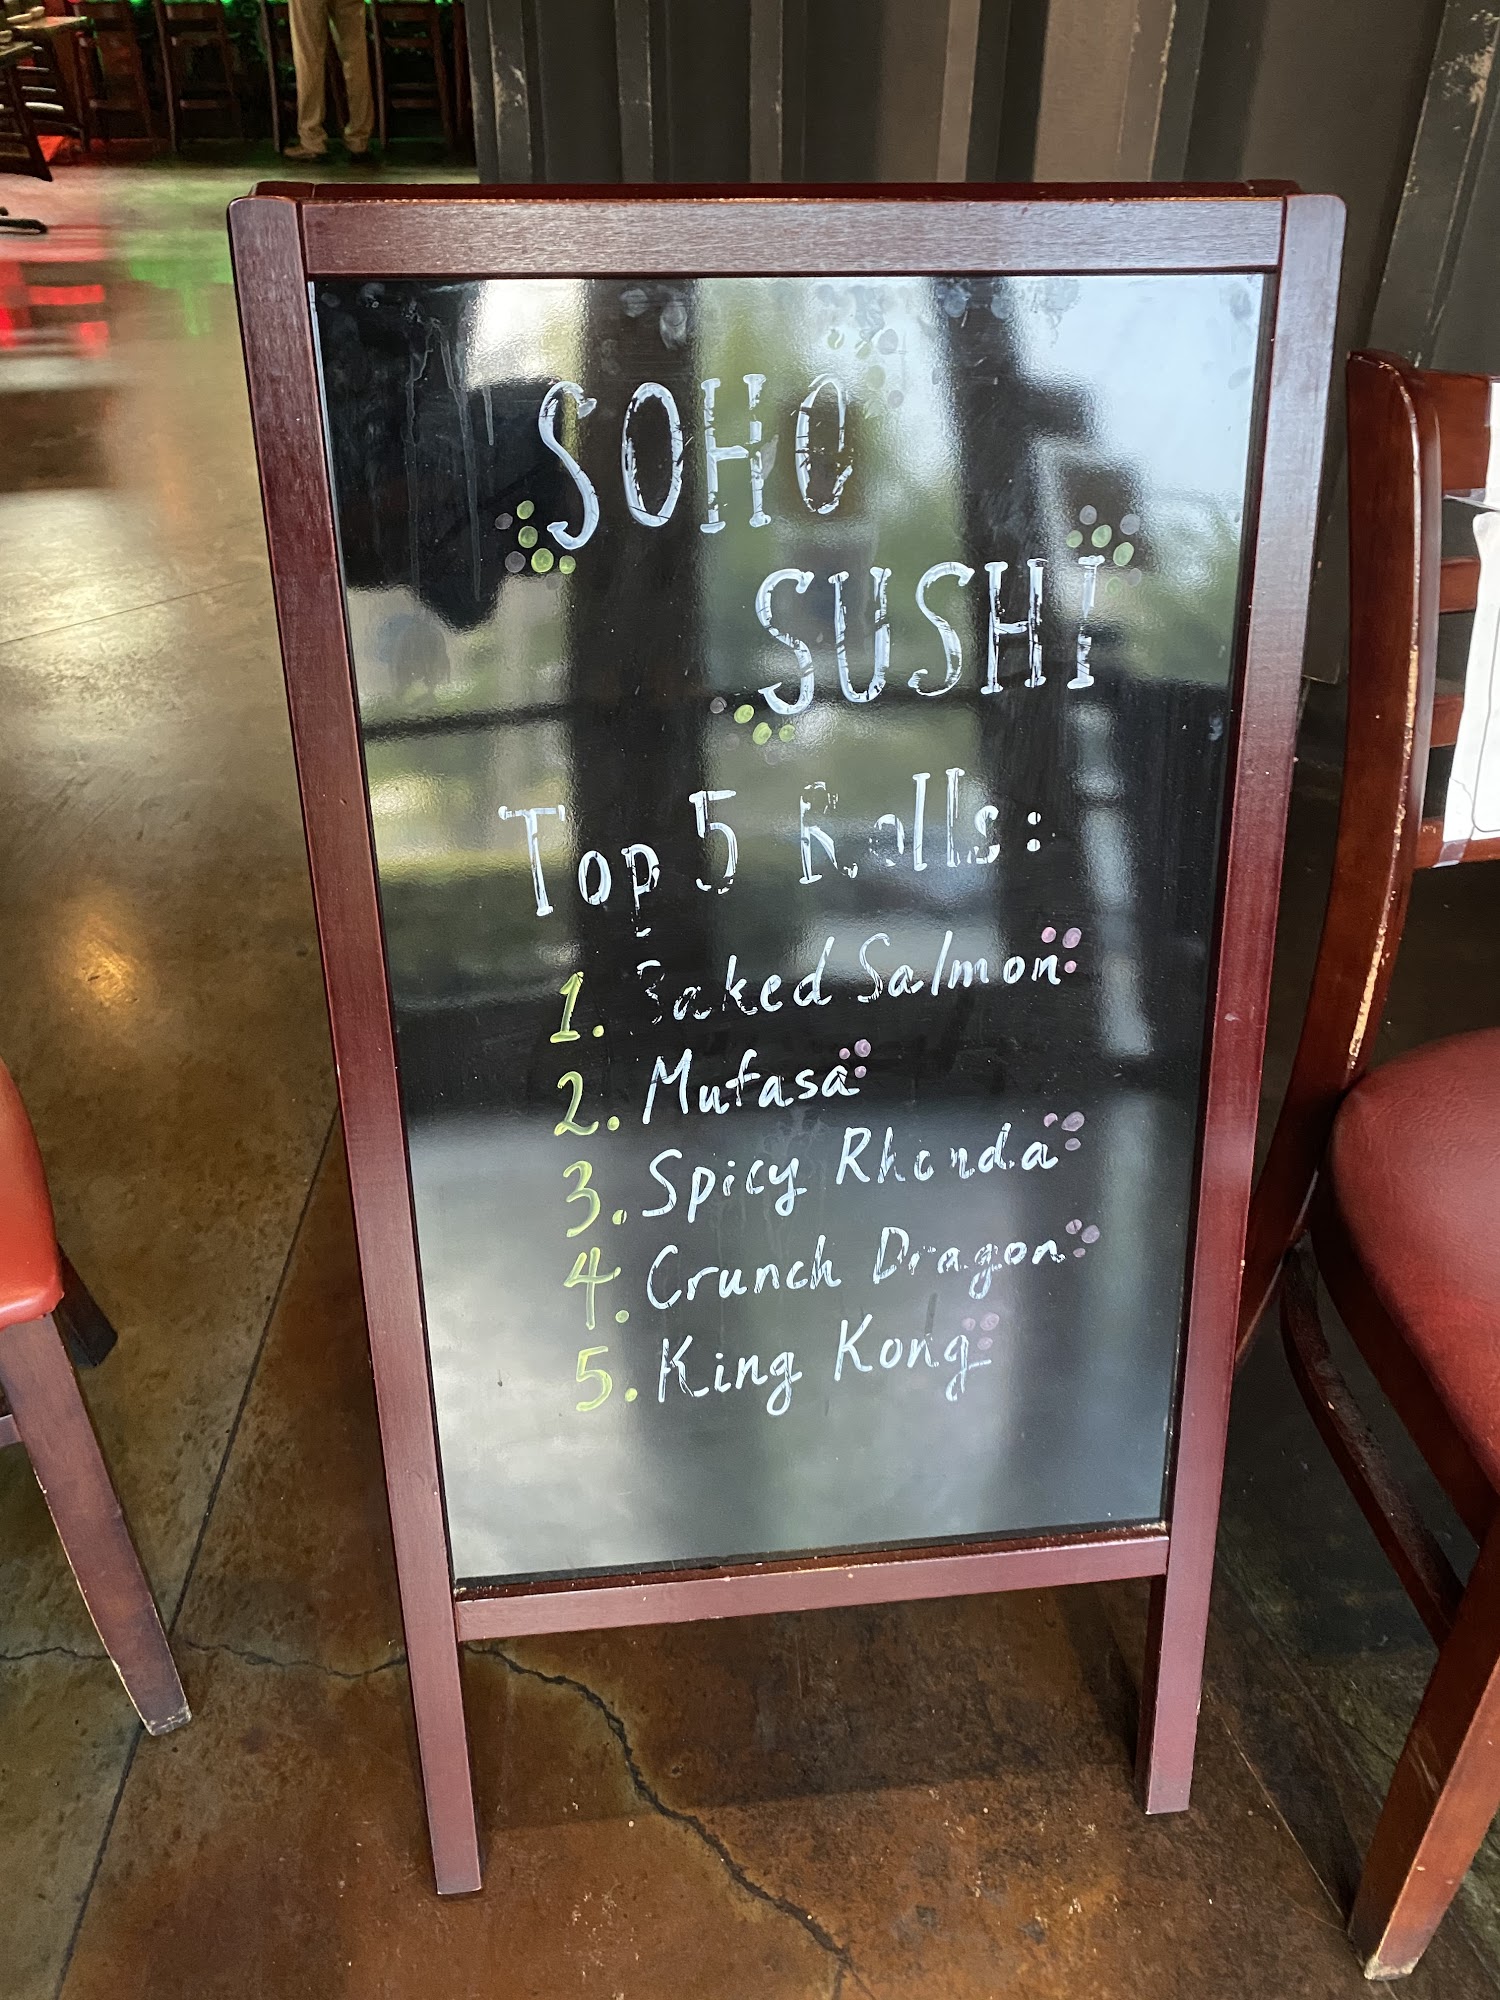 SOHO
SUSHI
Top 5 Rolls:
1. Baked Salmon
2. Mufasa
3. Spicy Rhonda
4. Crunch Dragon
5. King Kong